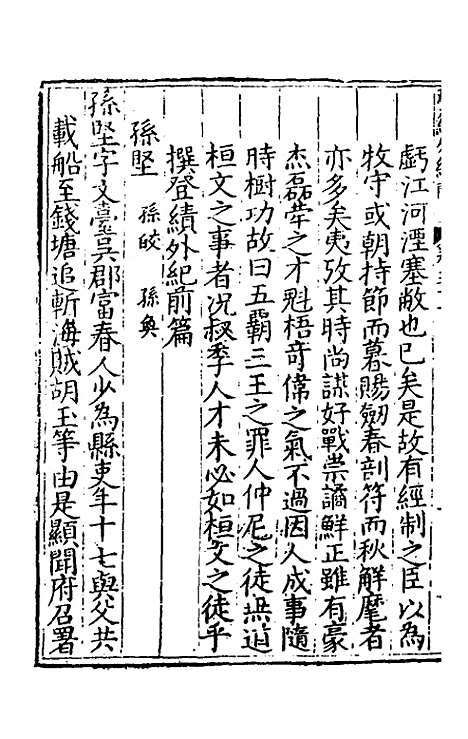 虧江河湮塞敝也已矣是故有經制之臣以為
牧守或朝持節而暮賜劒春剖符而秋解麾者
亦多矣夷攷其時尚謀好戰崇譎鮮正雖有豪
杰磊犖之才魁梧竒偉之氣不過因人成事隨
時樹功故曰五霸三王之罪人仲尼之徒無道
桓文之事者况叔季人才未必如桓文之徒乎
撰登績外紀前篇
孫堅 孫皎 孫奐
孫堅字文臺吳郡富春人少為縣吏年十七與父共
載船至錢塘追斬海賊胡玉等由是顯聞府召署